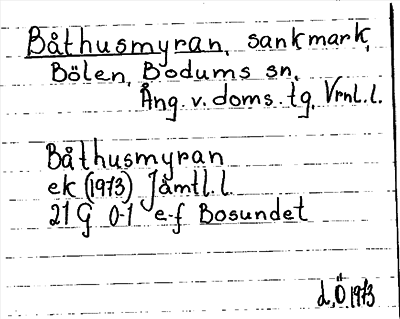 Båthusmyran, sankmark,
Bölen, Bodums sn,
Ång. v. doms. tg, Vrnl. l.
Båthusmyran
ek (1973) Jämtl. l.
21 G 0-1 e-f Bosundet
d, Ö 1973